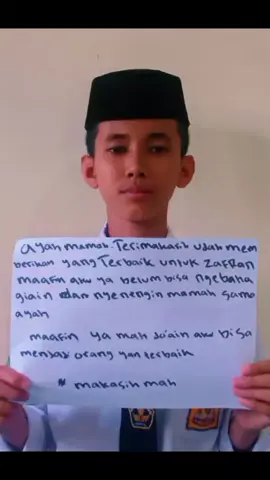 ayah mamah. Terimakasih udah mem
berikan yang Terbaik untuk Zafran
maafin aku ya belum bisa ngebaha
giain dan nyenengin mamah sama
ayah
maafin ya mah do'ain aku bisa
menjadi orang yan terbaik
makasih mah